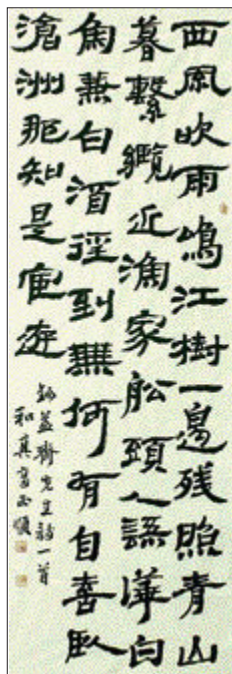 西風吹雨鳴江樹一邊残照青山
暮繫纜近漁家舩頭人語譁白
魚兼白酒徑到無何有自喜臥
滄洲那知是宦遊
鈔益齋先生詩一首
和真書